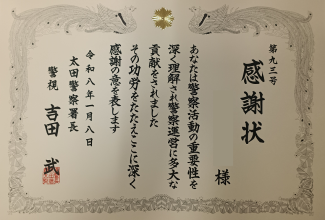 第九三号
感謝状
様
あなたは警察活動の重要性を
深く理解され警察運営に多大な
貢献をされました
その功労をたたえここに深く
感謝の意を表します
令和八年一月八日
太田警察署長
警視 吉田 武